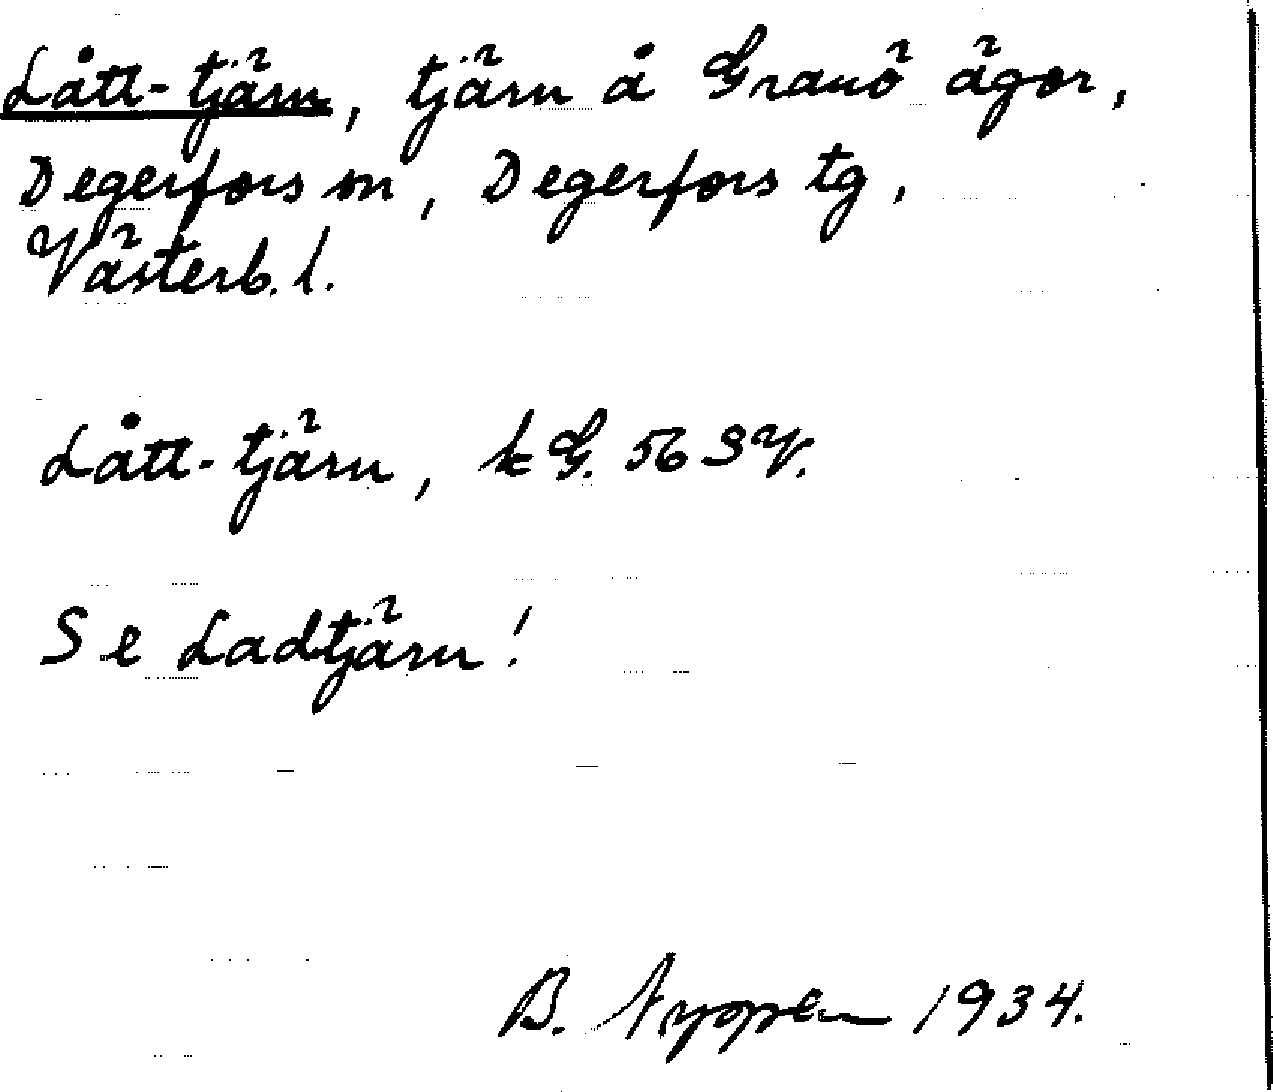 Lått-tjärn, tjärn å Granö ägor,
Degerfors sn, Degerfors tg,
Västerb. l.
Lått-tjärn, kG. 56 SV.
Se Ladtjärn!
B. 1934.